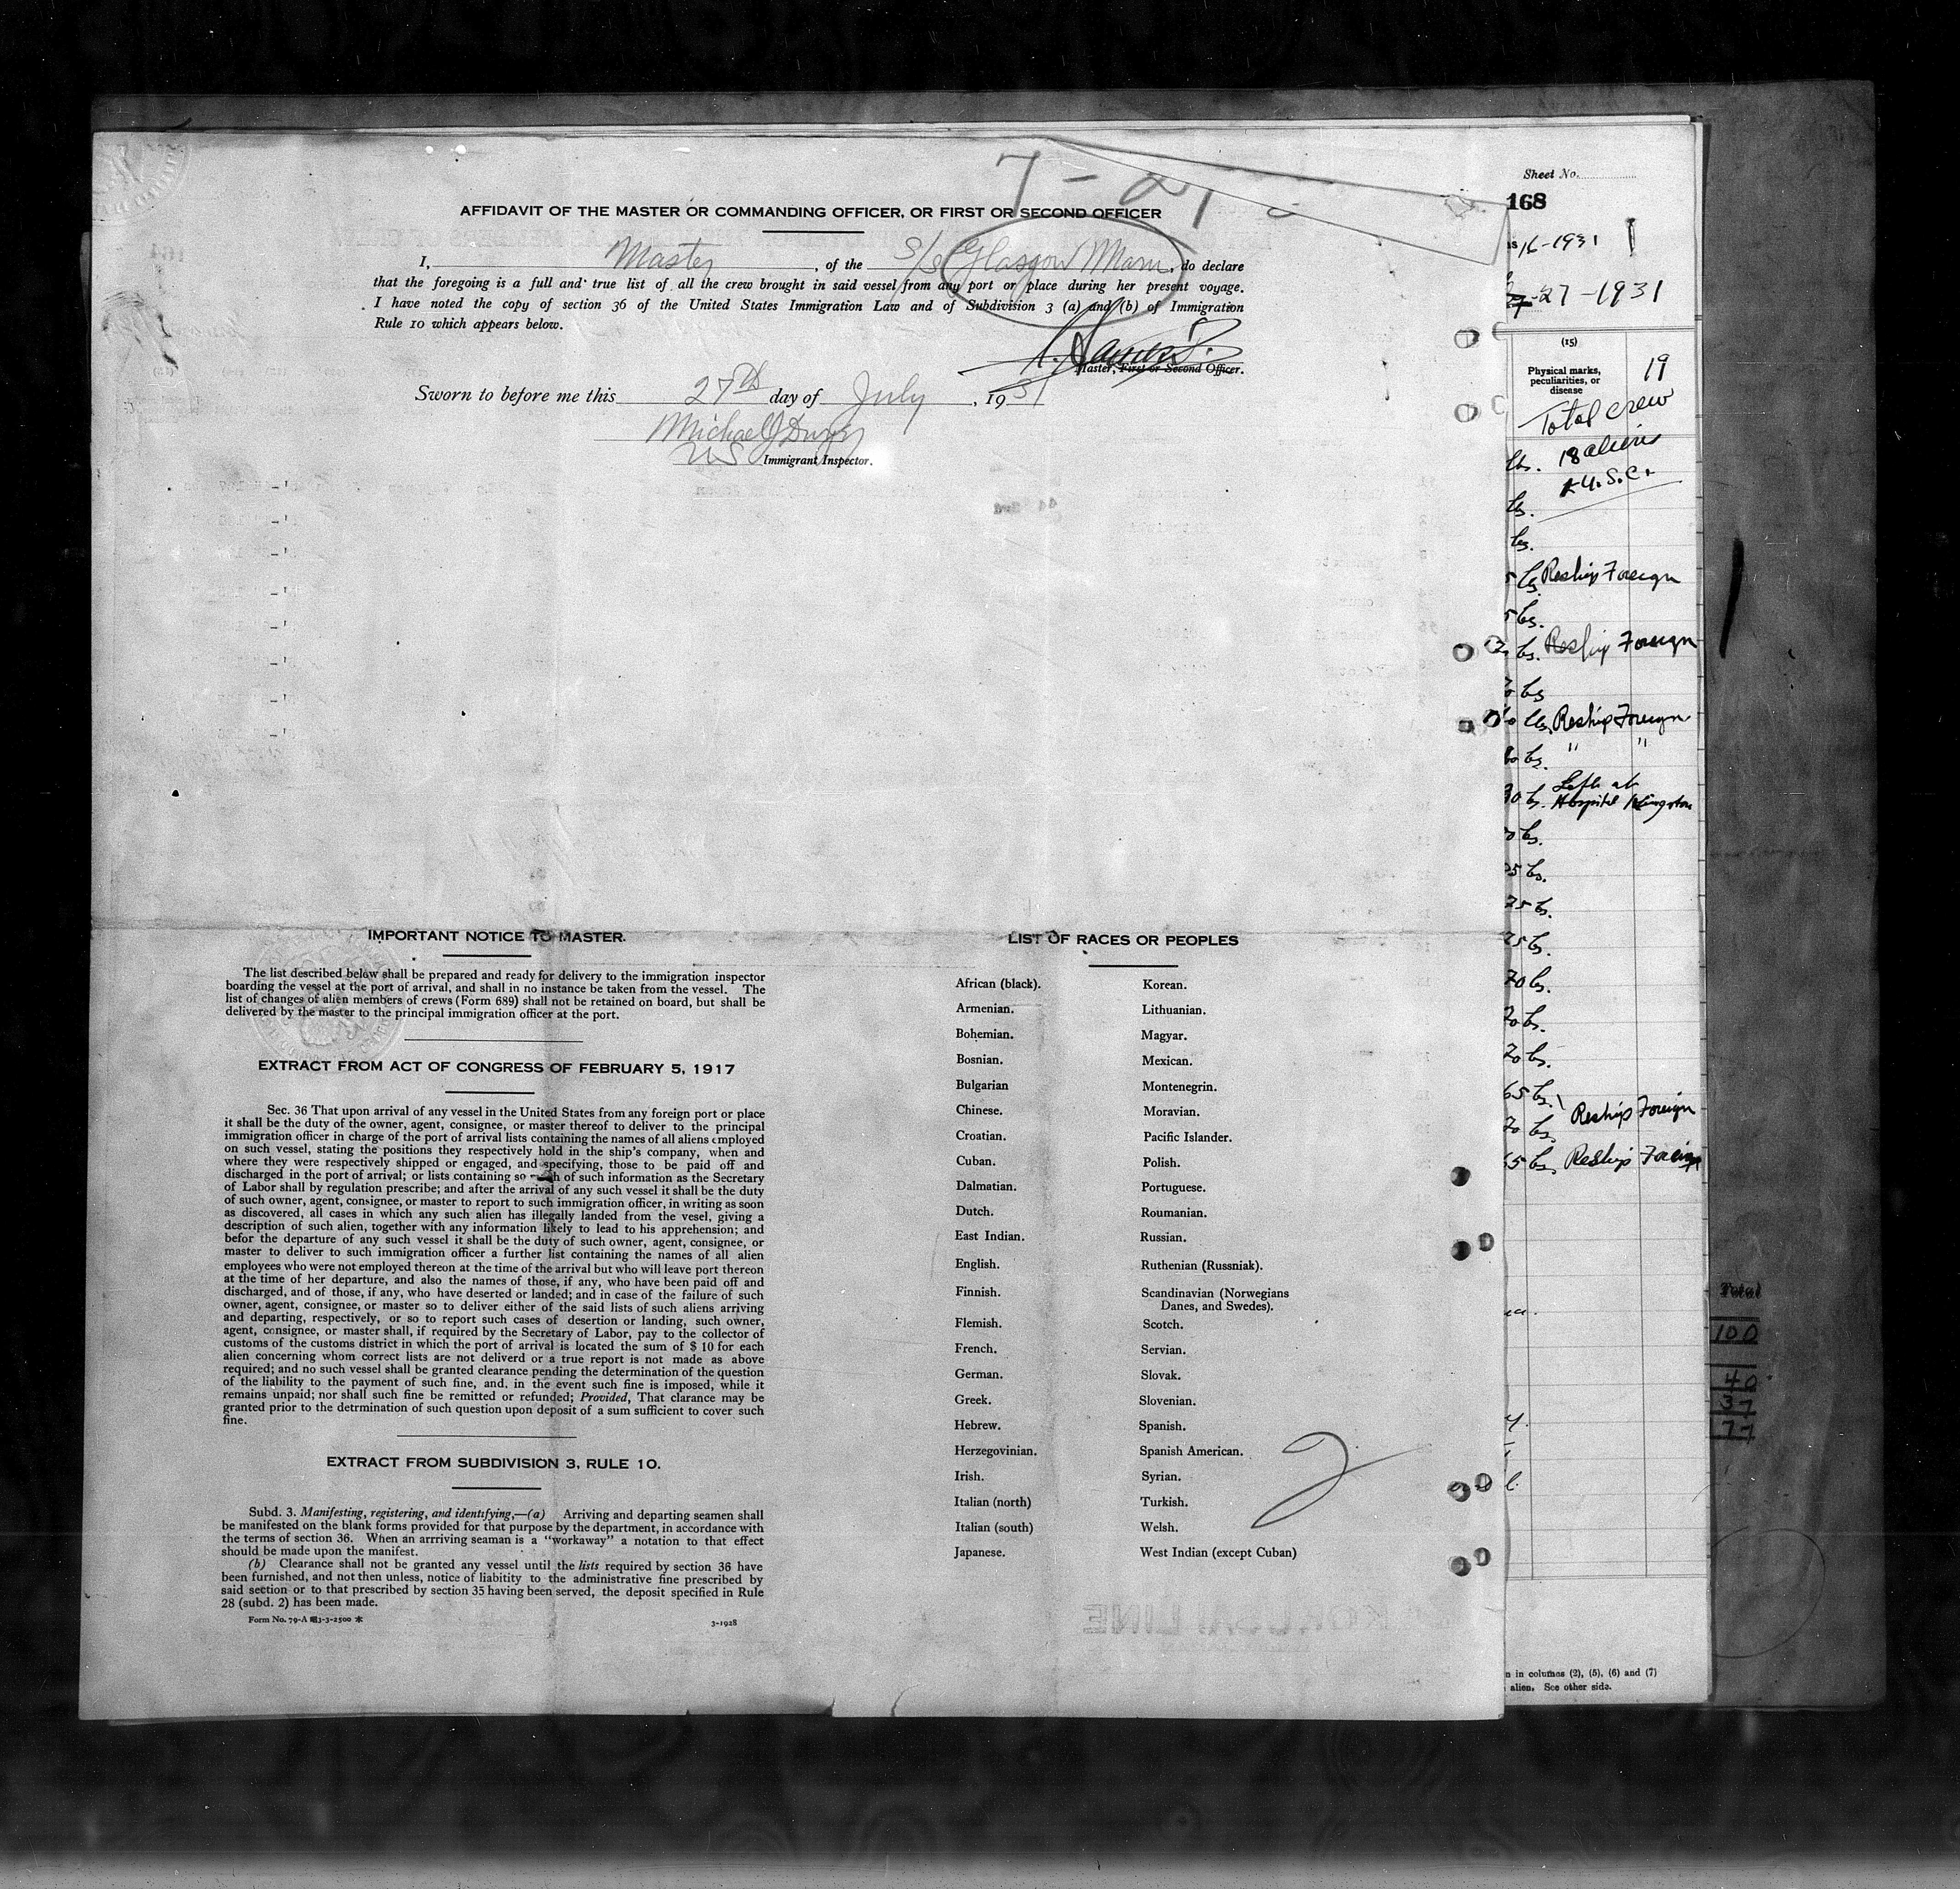 7-27
AFFIDAVIT OF THE MASTER OR COMMANDING OFFICER, OR FIRST OR SECOND OFFICER
I, Master, of the S/S Glasgow Maru, do declare
that the foregoing is a full and true list of all the crew brought in said vessel from any port or place during her present voyage.
I have noted the copy of section 36 of the United States Immigration Law and of Subdivision 3 (a) and (b) of Immigration
Rule 10 which appears below.
Master, First or Second Officer.
Sworn to before me this 27th day of July, 1931
Michael J
US Immigrant Inspector.
IMPORTANT NOTICE TO MASTER.
The list described below shall be prepared and ready for delivery to the immigration inspector
boarding the vessel at the port of arrival, and shall in no instance be taken from the vessel. The
list of changes of alien members of crews (Form 689) shall not be retained on board, but shall be
delivered by the master to the principal immigration officer at the port.
EXTRACT FROM ACT OF CONGRESS OF FEBRUARY 5, 1917
Sec. 36 That upon arrival of any vessel in the United States from any foreign port or place
it shall be the duty of the owner, agent, consignee, or master thereof to deliver to the principal
immigration officer in charge of the port of arrival lists containing the names of all aliens employed
on such vessel, stating the positions they respectively hold in the ship's company, when and
where they were respectively shipped or engaged, and specifying, those to be paid off and
discharged in the port of arrival; or lists containing so of such information as the Secretary
of Labor shall by regulation prescribe; and after the arrival of any such vessel it shall be the duty
of such owner, agent, consignee, or master to report to such immigration officer, in writing as soon
as discovered, all cases in which any such alien has illegally landed from the vesel, giving a
description of such alien, together with any information likely to lead to his apprehension; and
befor the departure of any such vessel it shall be the duty of such owner, agent, consignee, or
master to deliver to such immigration officer a further list containing the names of all alien
employees who were not employed thereon at the time of the arrival but who will leave port thereon
at the time of her departure, and also the names of those, if any, who have been paid off and
discharged, and of those, if any, who have deserted or landed; and in case of the failure of such
owner, agent, consignee, or master so to deliver either of the said lists of such aliens arriving
and departing, respectively, or so to report such cases of desertion or landing, such owner,
agent, consignee, or master shall, if required by the Secretary of Labor, pay to the collector of
customs of the customs district in which the port of arrival is located the sum of $ 10 for each
alien concerning whom correct lists are not deliverd or a true report is not made as above
required; and no such vessel shall be granted clearance pending the determination of the question
of the liability to the payment of such fine, and. in the event such fine is imposed, while it
remains unpaid; nor shall such fine be remitted or refunded; Provided, That clarance may be
granted prior to the detrmination of such question upon deposit of a sum sufficient to cover such
fine.
EXTRACT FROM SUBDIVISION 3, RULE 10.
Subd. 3. Manifesting, registering, and identifying,—(a) Arriving and departing seamen shall
be manifested on the blank forms provided for that purpose by the department, in accordance with
the terms of section 36. When an arrriving seaman is a "workaway" a notation to that effect
should be made upon the manifest.
(b) Clearance shall not be granted any vessel until the lists required by section 36 have
been furnished, and not then unless, notice of liabitity to the administrative fine prescribed by
said section or to that prescribed by section 35 having been served, the deposit specified in Rule
28 (subd. 2) has been made.
Form No. 79-A 3-3-2500
3-1928
LIST OF RACES OR PEOPLES
African (black).
Armenian.
Bohemian.
Bosnian.
Bulgarian
Chinese.
Croatian.
Cuban.
Dalmatian.
Dutch.
East Indian.
English.
Finnish.
Flemish.
French.
German.
Greek.
Hebrew.
Herzegovinian.
Irish.
Italian (north)
Italian (south)
Japanese.
Korean.
Lithuanian.
Magyar.
Mexican.
Montenegrin.
Moravian.
Pacific Islander.
Polish.
Portuguese.
Roumanian.
Russian.
Ruthenian (Russniak).
Scandinavian (Norwegians
Danes, and Swedes).
Scotch.
Servian.
Slovak.
Slovenian.
Spanish.
Spanish American.
Syrian.
Turkish.
Welsh.
West Indian (except Cuban)
2
KOKUSAI LINE
Sheet No.
168
16-1931
27-1931
(15)
Physical marks,
peculiarities, or
disease
19
Total crew
18 aliens
1 U.S.C.
Reship Foreign
Reship Foreign
Reship Foreign
" "
Left at
Hospital Kingston
Reship Foreign
Reship Foreign
n in columns (2), (5), (6) and (7)
alien. See other side.
Total
100
40
37
77